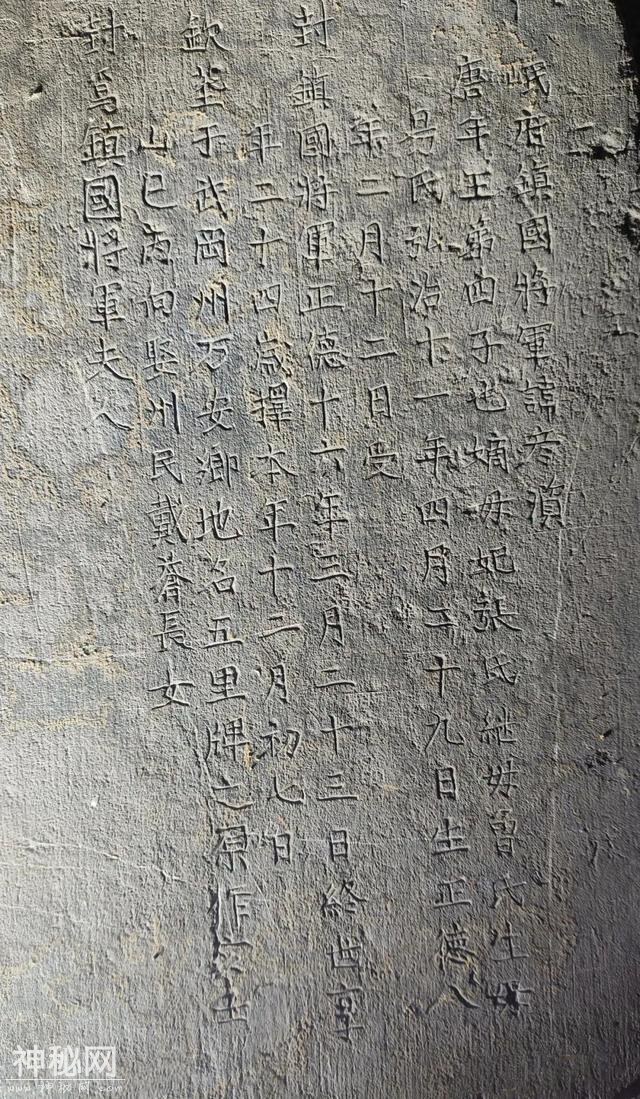 岷府鎮國將軍諱彦湞
唐年王第四子也嫡母妃張氏継母曾氏生母
易氏弘治十一年四月二十九日生正德八
年二月十二日受
封鎮國將軍正德十六年三月二十三日終世享
年二十四歲擇本年十二月初七日
欽塟于武岡州万安鄉地名五里牌之原作
山巳丙向娶州民戴長女
封爲鎮國將軍夫人
神秘网